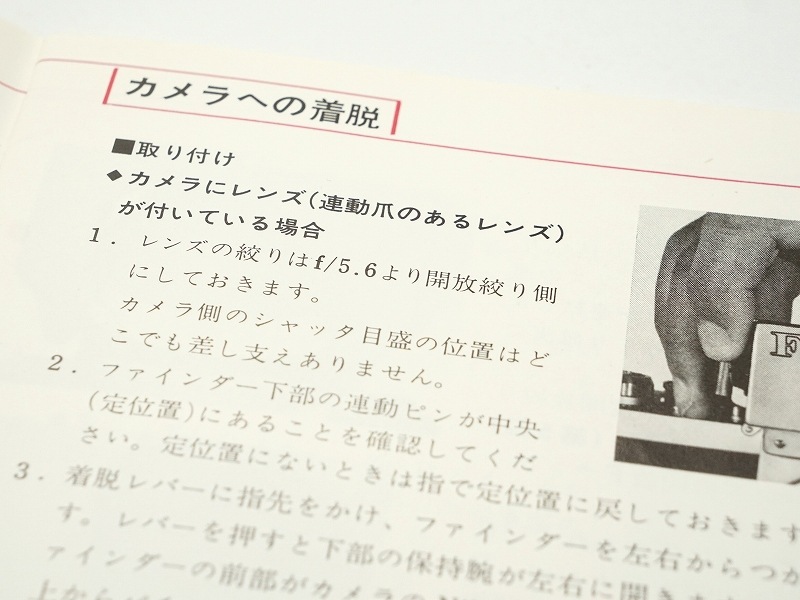 カメラへの着脱
■取り付け
◆カメラにレンズ(連動爪のあるレンズ)
が付いている場合
1. レンズの絞りはf/5.6より開放絞り側
にしておきます。
カメラ側のシャッタ目盛の位置はど
こでも差し支えありません。
2. ファインダー下部の連動ピンが中央
(定位置)にあることを確認してくだ
さい。定位置にないときは指で定位置に戻しておきます
3. 着脱レバーに指先をかけ、ファインダーを左右からつか
す。レバーを押すと下部の保持腕が左右に開きます
ァインダーの前部がカメラの
上から
F